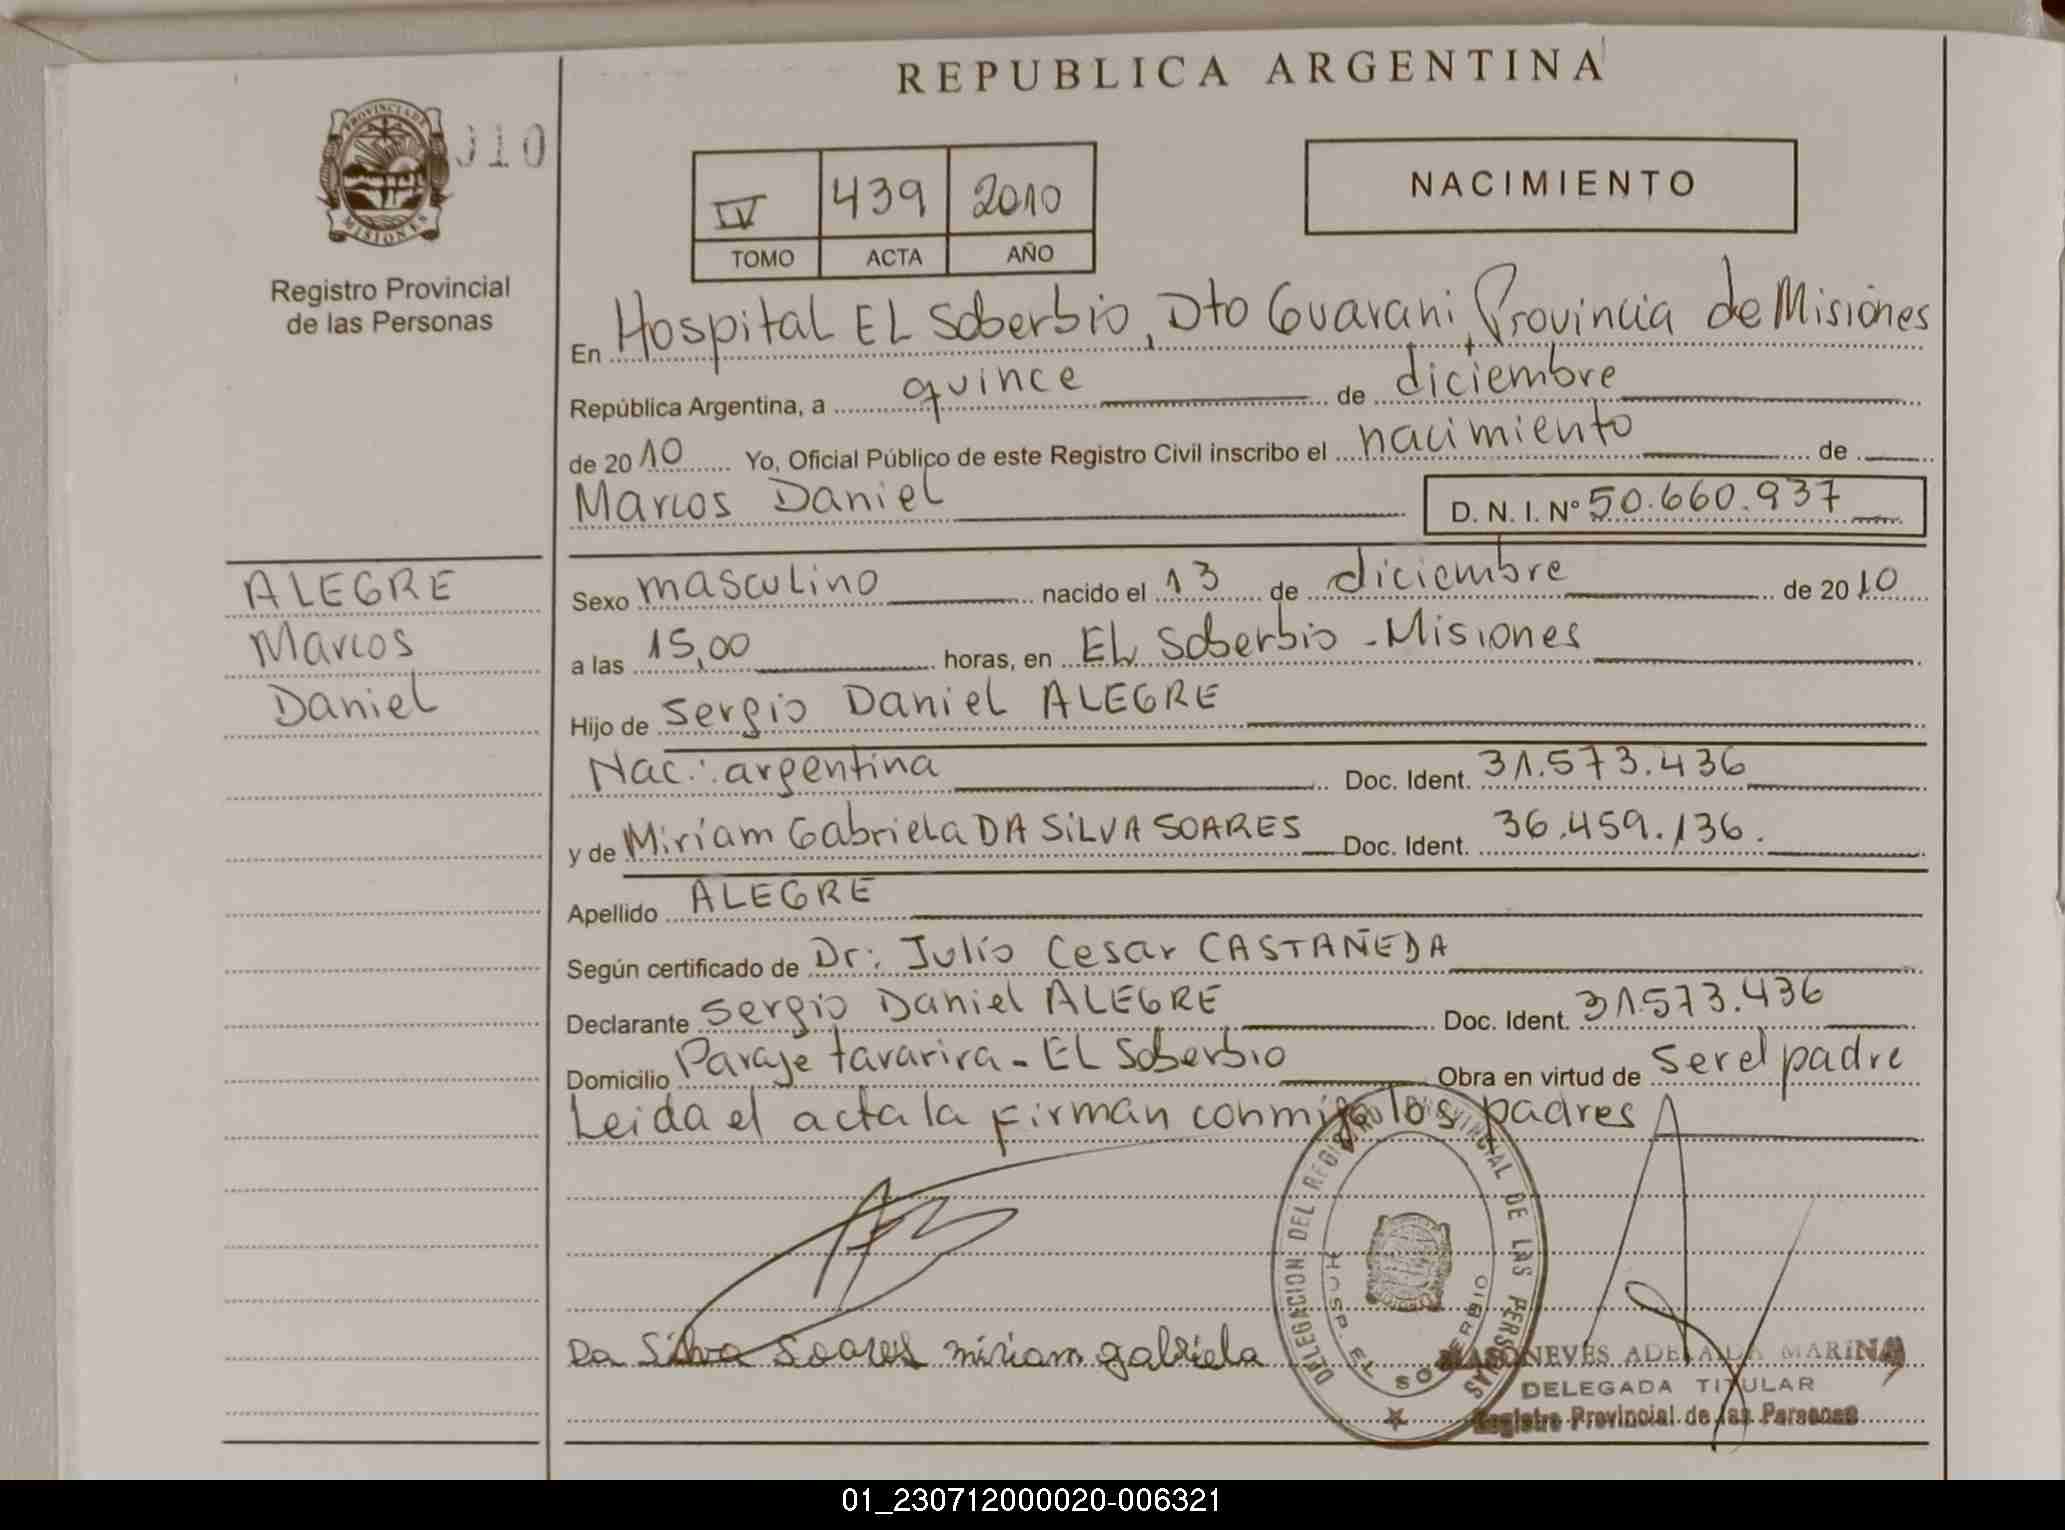 REPUBLICA ARGENTINA
PROVINCIA DE
MISIONES
010
Registro Provincial
de las Personas
IV 439 2010
TOMO ACTA AÑO
NACIMIENTO
En Hospital EL Soberbio, Dto Guarani, Provincia de Misiones
República Argentina, a quince de diciembre
de 2010 Yo, Oficial Público de este Registro Civil inscribo el nacimiento de
Marcos Daniel D. N. I. Nº 50.660.937
ALEGRE
Marcos
Daniel
Sexo masculino nacido el 13 de diciembre de 2010
a las 15,00 horas, en EL Soberbio - Misiones
Hijo de Sergio Daniel ALEGRE
Nac.: argentina Doc. Ident. 31.573.436
y de Miriam Gabriela DA SILVA SOARES Doc. Ident. 36.459.136.
Apellido ALEGRE
Según certificado de Dr: Julio Cesar CASTAÑEDA
Declarante Sergio Daniel ALEGRE Doc. Ident. 31.573.436
Domicilio Paraje tararira - EL Soberbio Obra en virtud de ser el padre
Leida el acta la firman conmigo los padres
DELEGACION DEL REGISTRO PROVINCIAL DE LAS PERSONAS
HOSP. EL SOBERBIO
Da Silva Soares miriam gabriela
NEVES ADELAIDA MARINA
DELEGADA TITULAR
Registro Provincial de las Personas
01_230712000020-006321